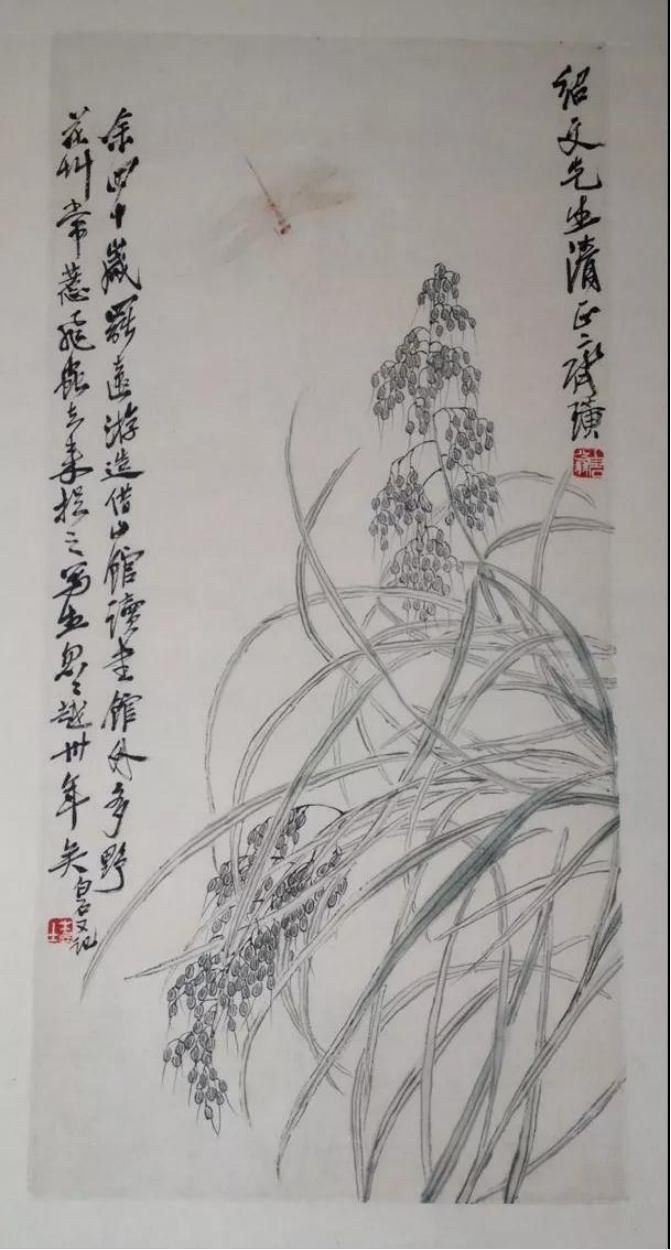 紹文先生清正齊璜
白石翁
余四十歲罷遠游造借山館讀書館外多野
花艸常惹飛虫去來捉之寫生忽〻越卅年矣
白石又記